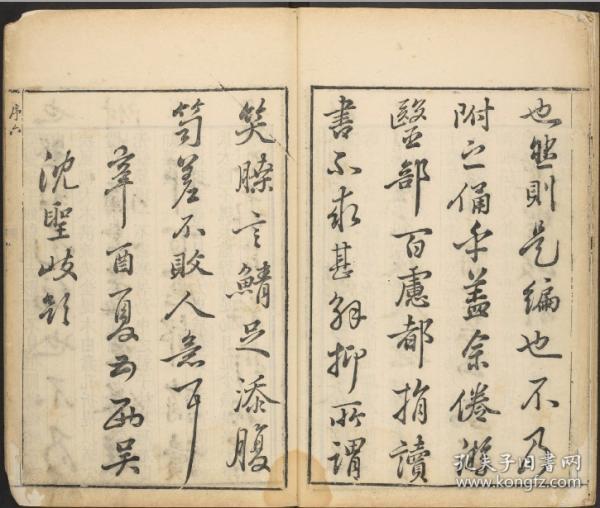 也然則是編也不乃
附之俑乎蓋余倦游
醫部百慮都捐讀
書不求甚解抑所謂
笑臊言鯖足添腹
笥差不敗人意耳
辛酉夏西吳
沈聖岐題
序六
孔夫子旧书网
www.kongfz.com